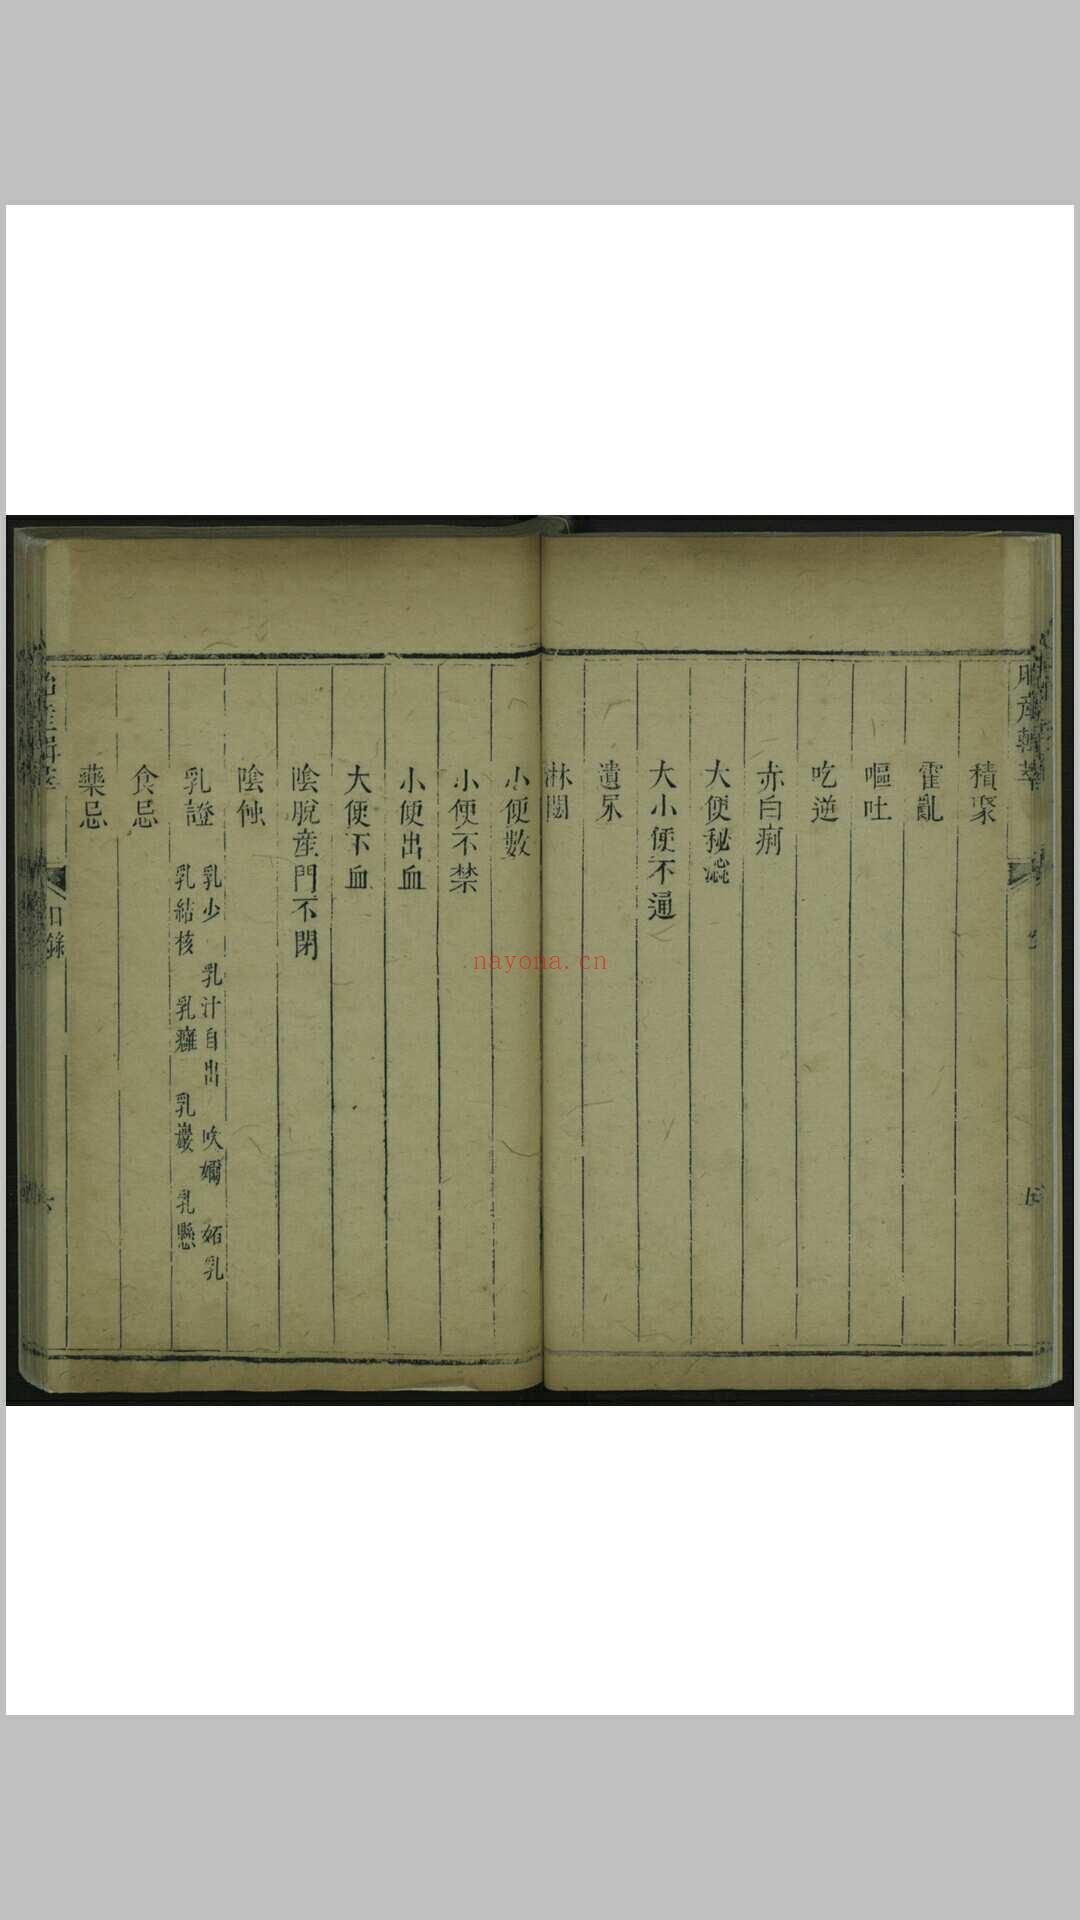 胎産輯萃
積聚
霍亂
嘔吐
吃逆
赤白痢
大便秘澁
大小便不通
遺尿
淋閟
小便數
小便不禁
小便出血
大便下血
陰脫産門不閉
陰蝕
乳證
乳少 乳汁自出 吹嬭 妬乳
乳結核 乳癰 乳巖 乳懸
食忌
藥忌
胎産輯萃
目錄
六
nayona.cn